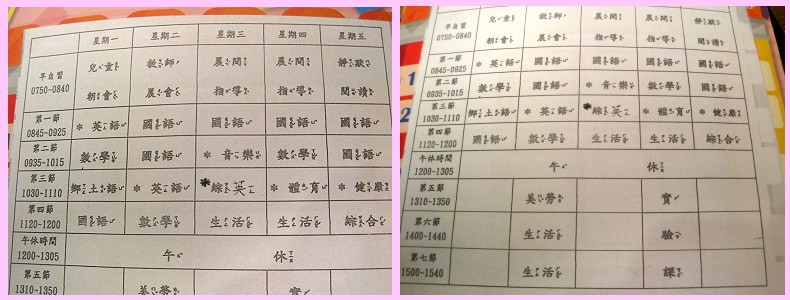 星期一 星期二 星期三 星期四 星期五
早自習 兒童 教師 晨間 晨間 靜默
0750~0840 朝會 晨會 指導 指導 閱讀
第一節 0845~0925 * 英語 國語 國語 國語 國語
第二節 0935~1015 數學 國語 * 音樂 數學 國語
第三節 1030~1110 鄉土語 * 英語 * 綜英 * 體育 * 健康
第四節 1120~1200 國語 數學 生活 生活 綜合
午休時間 1200~1305 午 休
第五節 1310~1350 美勞 實
早自習 兒童 教師 晨間 晨間 靜默
0750~0840 朝會 晨會 指導 指導 閱讀
第一節 0845~0925 * 英語 國語 國語 國語 國語
第二節 0935~1015 數學 國語 * 音樂 數學 國語
第三節 1030~1110 鄉土語 * 英語 * 綜英 * 體育 * 健康
第四節 1120~1200 國語 數學 生活 生活 綜合
午休時間 1200~1305 午 休
第五節 1310~1350 美勞 實
第六節 1400~1440 生活 驗
第七節 1500~1540 生活 課